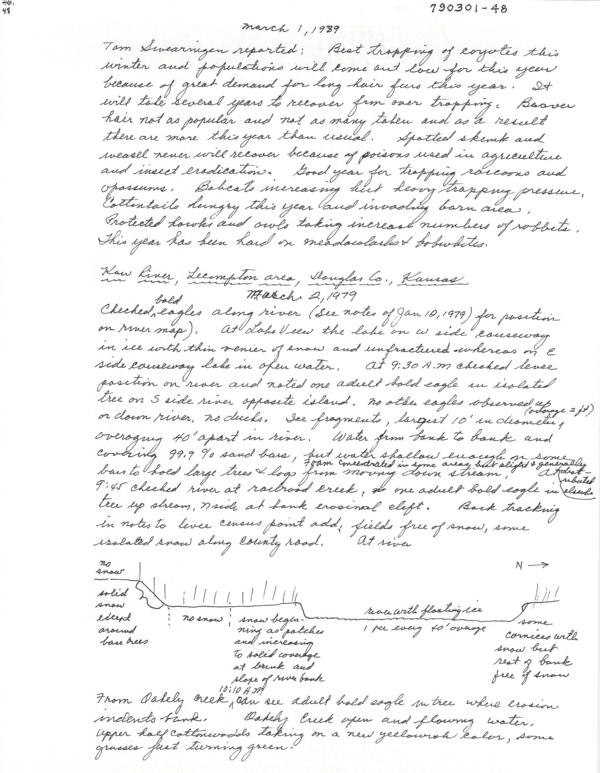 790301-48
48
March 1, 1989
Tom Swearingen reported: Best trapping of coyotes this
winter and populations will come out low for this year
because of great demand for long hair furs this year. It
will take several years to recover frm over trapping. Beaver
hair not as popular and not as many taken and as a result
there are more this year than usual. Spotted skunk and
weasel never will recover because of poisons used in agriculture
and insect eradication. Good year for trapping raccoons and
opossums. Bobcats increasing but heavy trapping pressure.
Cottontails hungry this year and invading barn area.
Protected hawks and owls taking increase numbers of rabbits.
This year has been hard on meadowlarks & bobwhites.
Kaw River, Lecompton area, Douglas Co., Kansas
March 2, 1979
Checked bald eagles along river (See notes of Jan 10, 1979) for position
on river map). At Lake View the lake on W side causeway
in ice with thin venier of snow and unfractured whereas on E
side causeway lake in open water. At 9:30 A.M checked levee
position on river and noted one adult bald eagle in isolated
tree on S side river opposite island. No other eagles observed up
or down river, no ducks. Ice fragments, largest 10' in diameter,
overaging 40' apart in river. Water from bank to bank and
covering 99.9% sand bars, but water shallow enough on some
bars to hold large trees & logs from moving down stream.
Foam concentrated in some areas but slight & generally
9:45 checked river at railroad creek, one adult bald eagle in
tree up stream, N side at bank erosional cleft. Back tracking
in notes to levee census point add: fields free of snow, some
isolated snow along county road. At river
no
snow
N →
solid
snow
except
around
base trees
no snow
snow begin-
ning as patches
and increasing
to solid coverage
at brink and
slope of river bank
river with floating ice
1 per every 40' average
some
cornices with
snow but
rest of bank
free of snow
From Oakely Creek 10:10 A.M can see adult bald eagle in tree where erosion
indents bank. Oakely Creek open and flowing water.
Upper half cottonwoods taking on a new yellowish color, some
grasses just turning green.